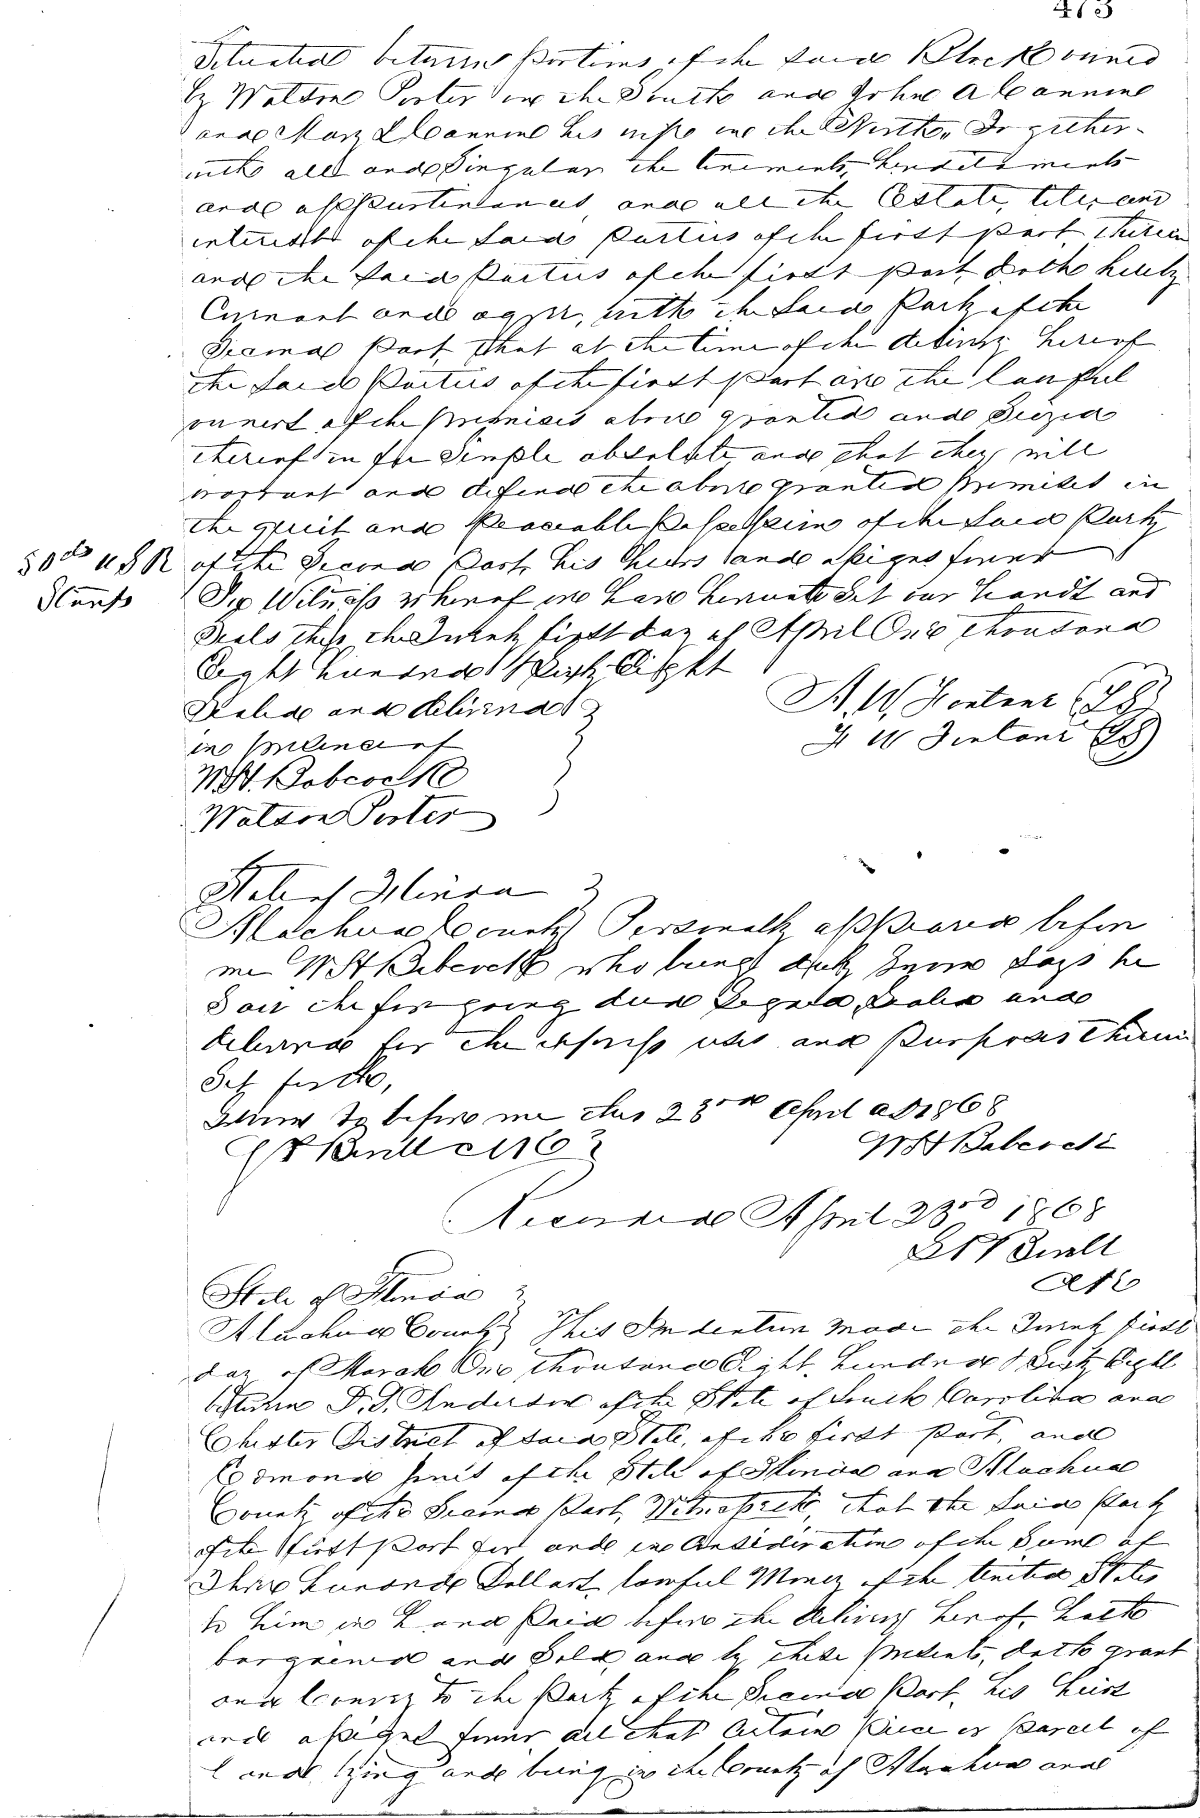 473
Situated between portions of the said Block owned
by Watson Porter on the South and John A Cannine
and Mary L Cannine his wife on the North, Together
with all and Singular the tenements, hereditaments
and appurtenances, and all the Estate, title, and
interest of the said parties of the first part therein
and the said parties of the first part doth hereby
Covenant and agree, with the said Party of the
Second part, that at the time of the delivery hereof
the said parties of the first part are the lawful
owners of the premises above granted and Seized
thereof in fee Simple absolute and that they will
warrant and defend the above granted premises in
the quiet and Peaceable possession of the said Party
50 cts U S R of the Second Part, his heirs and assigns forever
Stamps In Witness whereof we have hereunto Set our hands and
Seals this the Twenty first day of April One thousand
Eight hundred & Sixty Eight
Sealed and delivered
in presence of
W.H. Babcock
Watson Porter
A. W. (LS)
W (LS)
State of Florida
Alachua County Personally appeared before
me W H Babcock who being duly Sworn Says he
Saw the foregoing deed Signed, Sealed and
delivered for the express uses and purposes therein
Set forth,
Sworn to before me this 23rd April AD 1868
W H Babcock
Recorded April 23rd 1868
State of Florida
Alachua County This Indenture Made the Twenty first
day of March One thousand Eight hundred & Sixty Eight
between Anderson of the State of South Carolina and
Chester District of said State, of the first part, and
Edmond of the State of Florida and Alachua
County of the Second Part, Witnesseth, that the said Party
of the first part for and in Consideration of the Sum of
Three hundred Dollars lawful Money of the United States
to him in hand paid before the delivery hereof, hath
bargained and Sold, and by these presents, doth grant
and Convey to the Party of the Second Part, his heirs
and assigns forever all that Certain Piece or Parcel of
land lying and being in the County of Alachua and